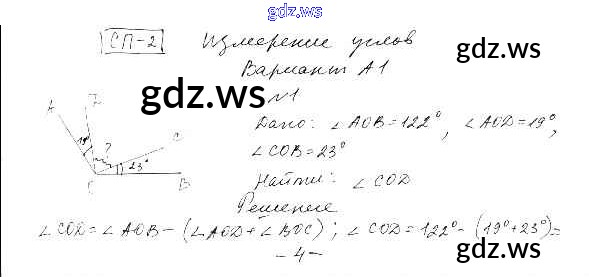 gdz.ws
СП-2 Измерение углов
gdz.ws
Вариант А1
gdz.ws
№1
А D
Дано: ∠AOB=122°, ∠AOD=19°,
19° ? C
∠COB=23°
23°
O B
Найти: ∠COD
Решение
∠COD=∠AOB-(∠AOD+∠BOC); ∠COD=122°-(19°+23°)=
gdz.ws
-4-